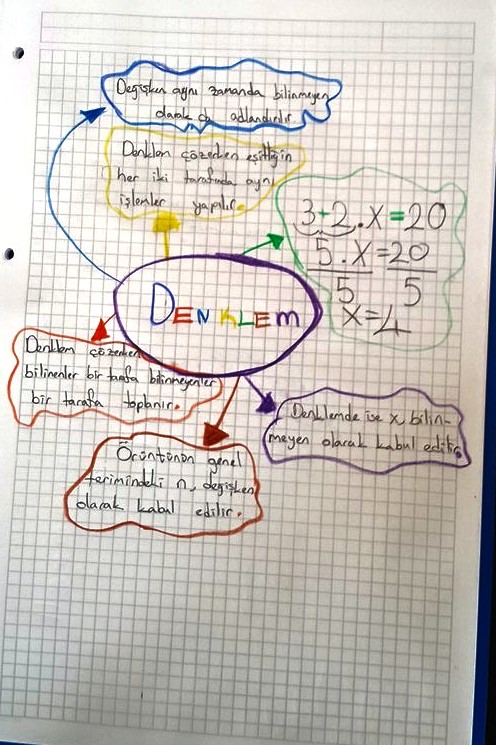 Değişken aynı zamanda bilinmeyen
olarak da adlandırılır.
Denklem çözerken eşitliğin
her iki tarafında aynı
işlemler yapılır.
3+2.x=20
5.x=20
5 5
x=4
DENKLEM
Denklem çözerken
bilinenler bir tarafa bilinmeyenler
bir tarafa toplanır.
Denklemde ise x, bilin-
meyen olarak kabul edilir.
Örüntünün genel
terimindeki n, değişken
olarak kabul edilir.